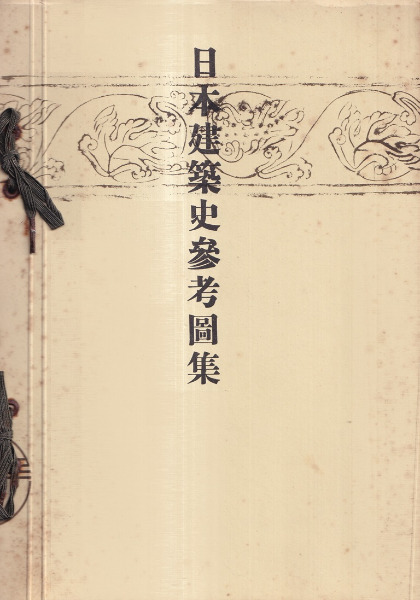 日本建築史參考圖集